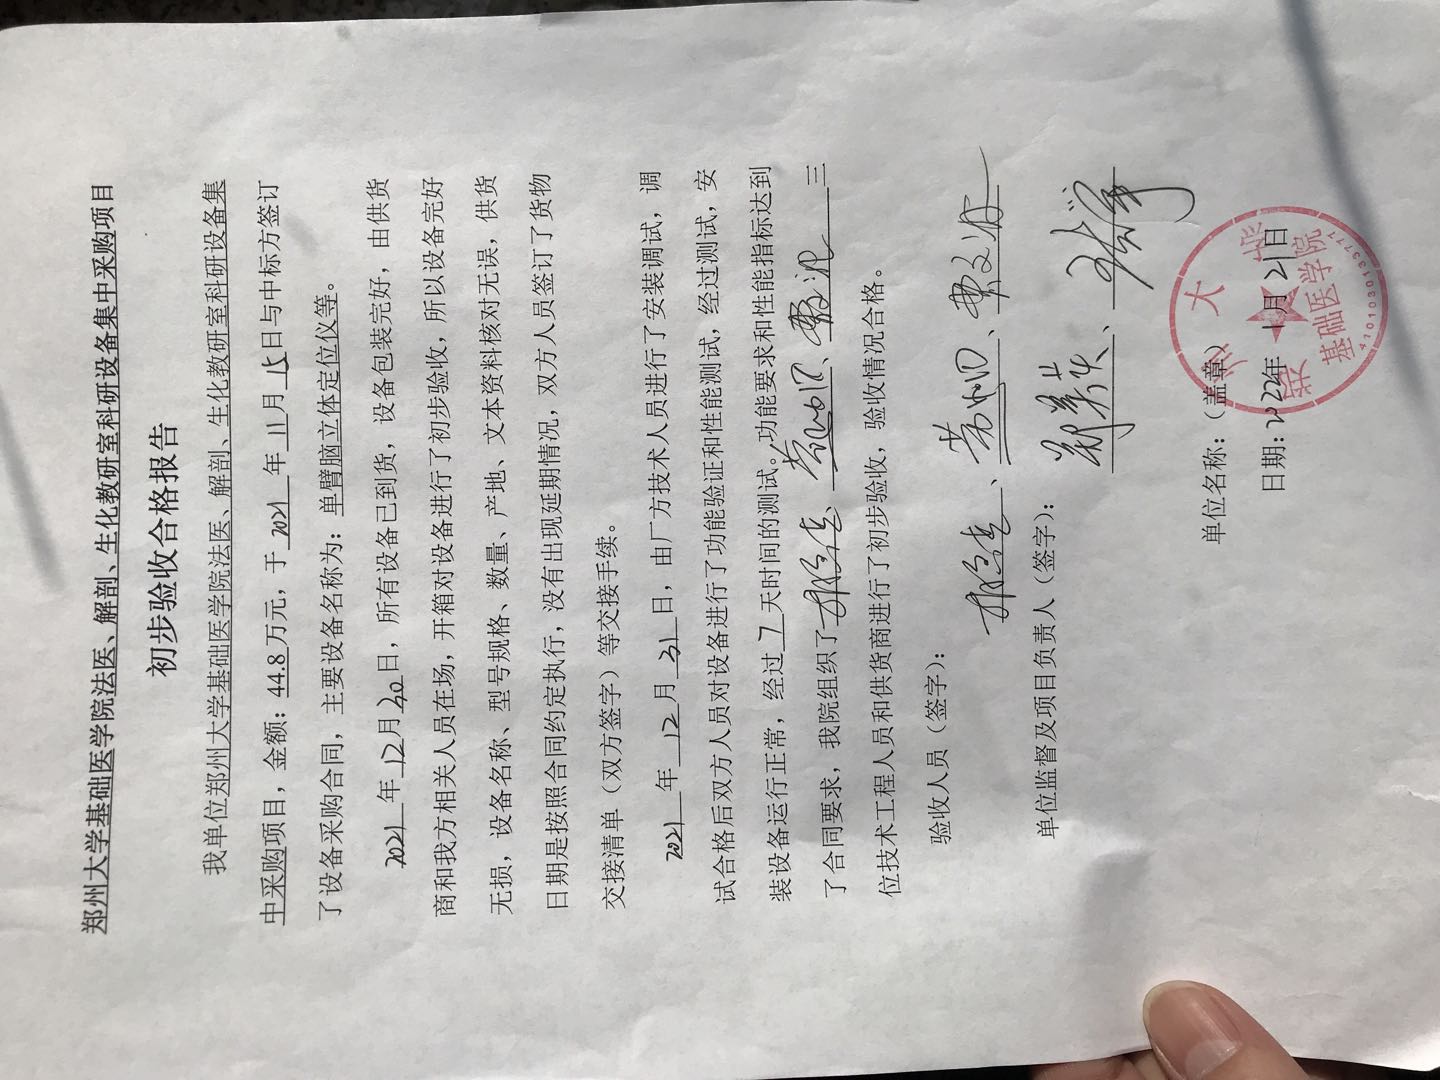 郑州大学基础医学院法医、解剖、生化教研室科研设备集中采购项目
初步验收合格报告
我单位郑州大学基础医学院法医、解剖、生化教研室科研设备集
中采购项目，金额：44.8万元，于2021年11月15日与中标方签订
了设备采购合同，主要设备名称为：单臂脑立体定位仪等。
2021年12月30日，所有设备已到货，设备包装完好，由供货
商和我方相关人员在场，开箱对设备进行了初步验收，所以设备完好
无损，设备名称、型号规格、数量、产地、文本资料核对无误，供货
日期是按照合同约定执行，没有出现延期情况，双方人员签订了货物
交接清单（双方签字）等交接手续。
2021年12月31日，由厂方技术人员进行了安装调试，调
试合格后双方人员对设备进行了功能验证和性能测试，经过测试，安
装设备运行正常，经过7天时间的测试。功能要求和性能指标达到
了合同要求，我院组织了、、三
位技术工程人员和供货商进行了初步验收，验收情况合格。
验收人员（签字）：
、、
单位监督及项目负责人（签字）：
、
单位名称：（盖章）
日期：2022年1月21日
郑州大学
基础医学院